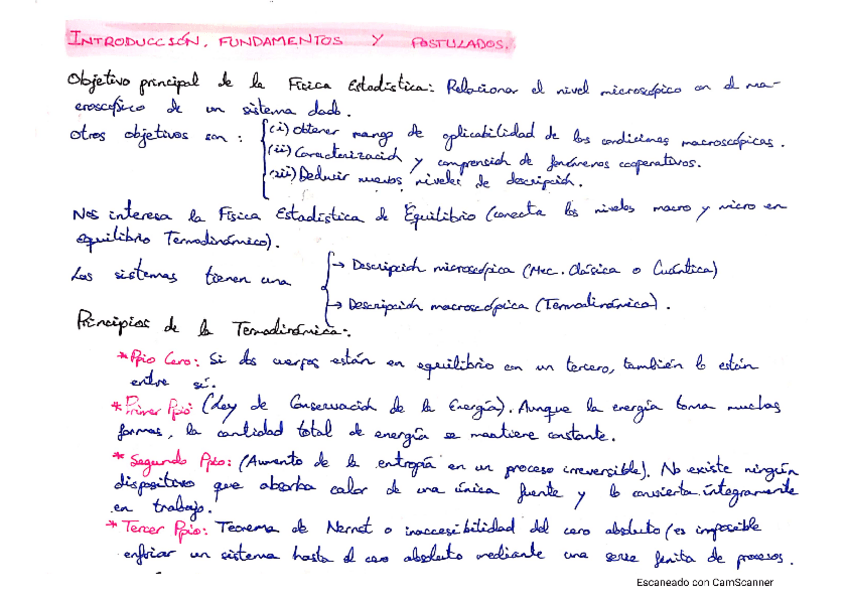 INTRODUCCIÓN, FUNDAMENTOS Y POSTULADOS.
Objetivo principal de la Física Estadística: Relacionar el nivel microscópico con el ma-
croscópico de un sistema dado.
Otros objetivos son: (i) Obtener rango de aplicabilidad de las condiciones macroscópicas.
(ii) Caracterización y comprensión de fenómenos cooperativos.
(iii) Deducir nuevos niveles de descripción.
Nos interesa la Física Estadística de Equilibrio (conecta los niveles macro y micro en
equilibrio Termodinámico).
Los sistemas tienen una → Descripción microscópica (Mec. Clásica o Cuántica)
→ Descripción macroscópica (Termodinámica).
Principios de la Termodinámica:
* Ppio Cero: Si dos cuerpos están en equilibrio con un tercero, también lo están
entre sí.
* Primer Ppio: (Ley de Conservación de la Energía). Aunque la energía toma muchas
formas, la cantidad total de energía se mantiene constante.
* Segundo Ppio: (Aumento de la entropía en un proceso irreversible). No existe ningún
dispositivo que absorba calor de una única fuente y lo convierta íntegramente
en trabajo.
* Tercer Ppio: Teorema de Nernst o inaccesibilidad del cero absoluto (es imposible
enfriar un sistema hasta el cero absoluto mediante una serie finita de procesos.
Escaneado con CamScanner